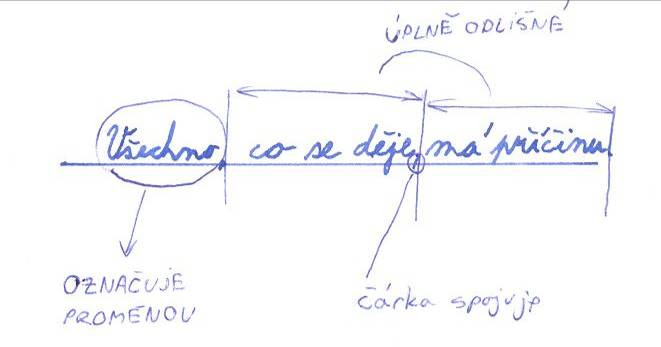 ÚPLNĚ ODLIŠNÉ
Všechno, co se děje, má příčinu.
OZNAČUJE
PROMĚNOU
čárka spojuje